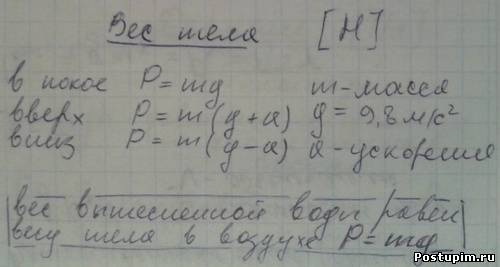 Вес тела [Н]
в покое P = mg m - масса
вверх P = m(g + a) g = 9,8 м/с²
вниз P = m(g - a) a - ускорение
вес вытесненной воды равен
весу тела в воздухе P = mg
Postupim.ru